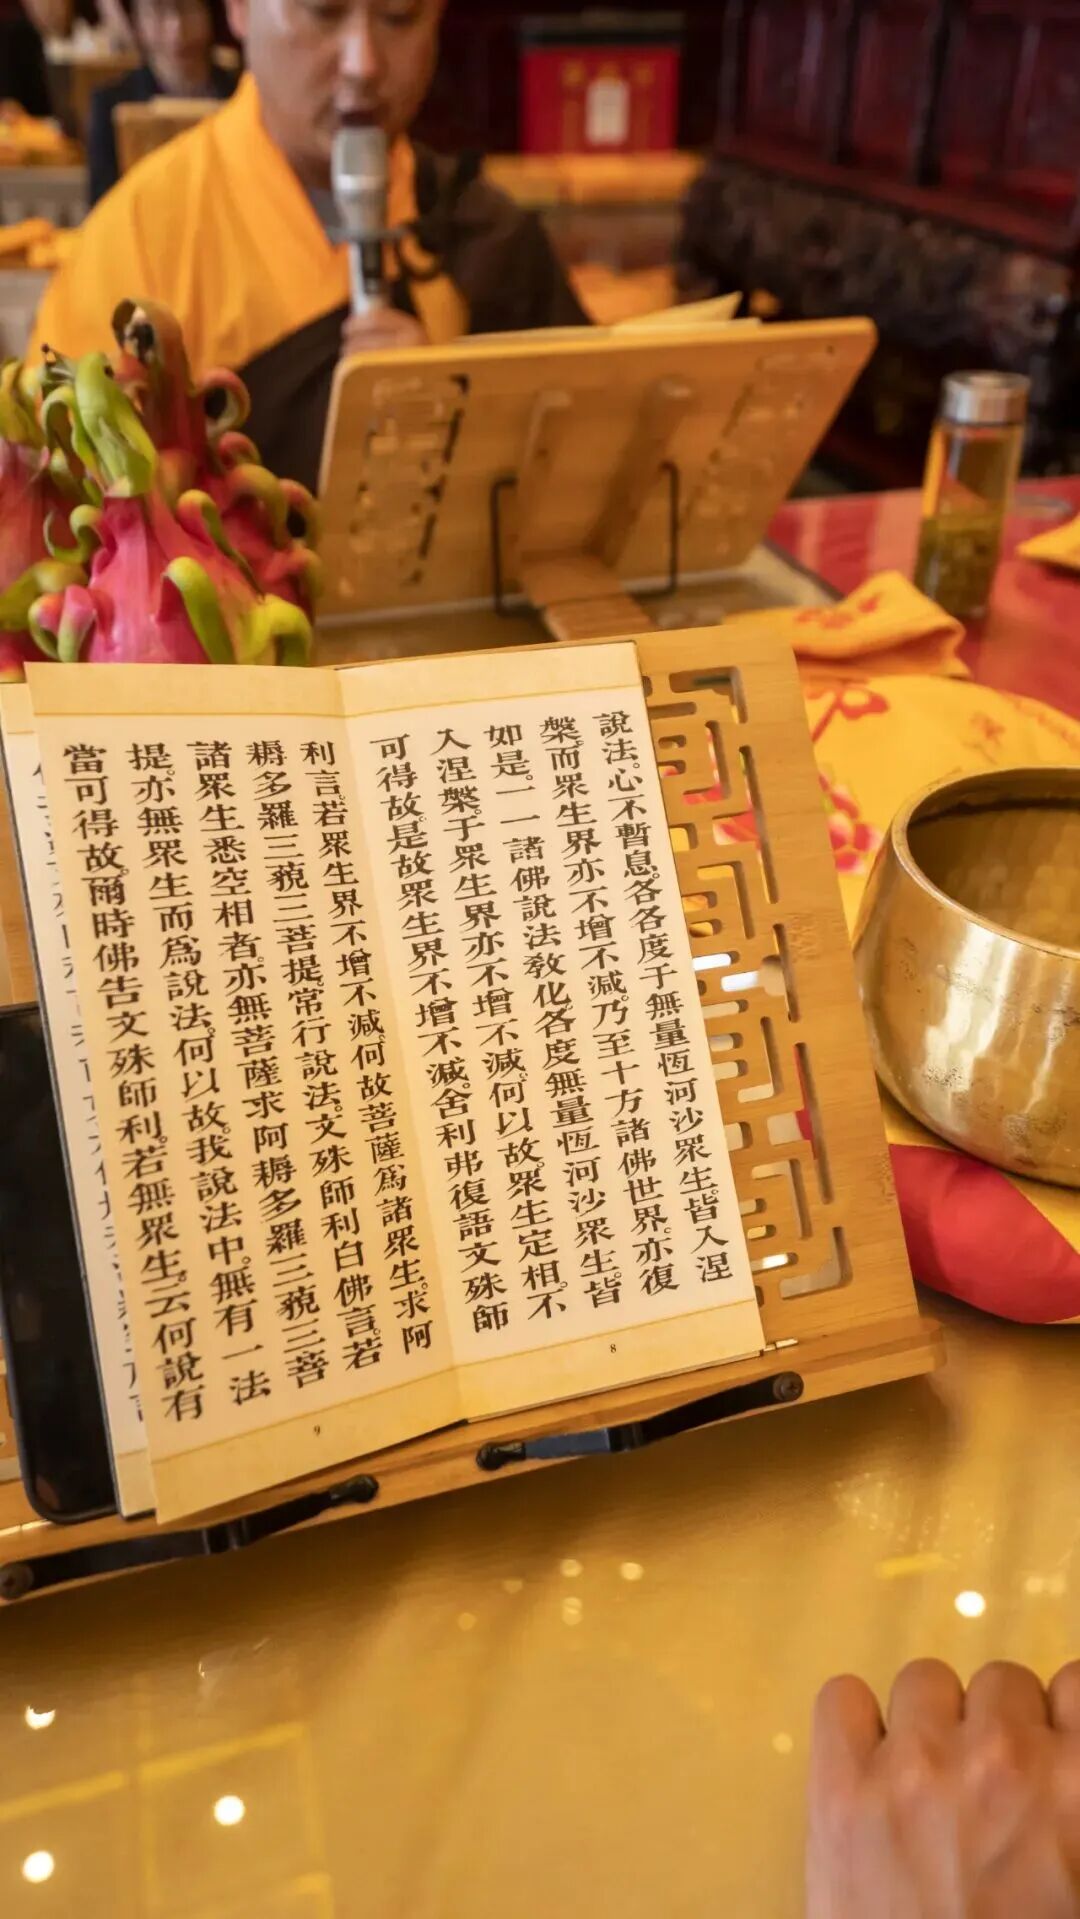 說法。心不暫息。各各度于無量恆河沙眾生。皆入涅
槃。而眾生界亦不增不減。乃至十方諸佛世界。亦復
如是。一一諸佛說法教化。各度無量恆河沙眾生。皆
入涅槃。于眾生界亦不增不減。何以故。眾生定相。不
可得故。是故眾生界不增不減。舍利弗復語文殊師
8
利言。若眾生界不增不減。何故菩薩爲諸眾生。求阿
耨多羅三藐三菩提。常行說法。文殊師利白佛言。若
諸眾生悉空相者。亦無菩薩求阿耨多羅三藐三菩
提。亦無眾生而爲說法。何以故。我說法中。無有一法
當可得故。爾時佛告文殊師利。若無眾生。云何說有
9